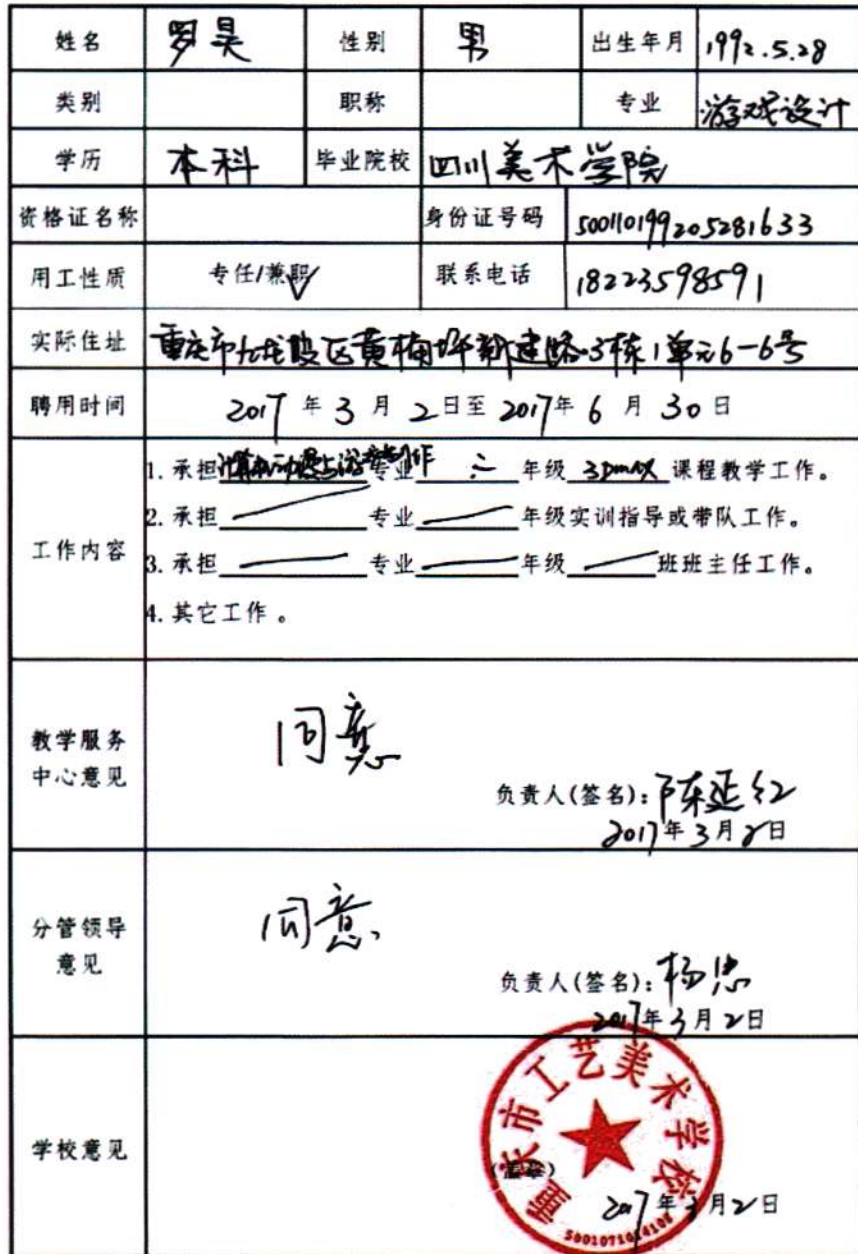 姓名 罗昊 性别 男 出生年月 1992.5.28
类别 职称 专业 游戏设计
学历 本科 毕业院校 四川美术学院
资格证名称 身份证号码 500110199205281633
用工性质 专任/兼职√ 联系电话 18223598591
实际住址 重庆市九龙坡区黄桷坪新建路3栋1单元6-6号
聘用时间 2017年3月2日至2017年6月30日
工作内容
1.承担计算机动漫与游戏制作专业二年级3Dmax课程教学工作。
2.承担 专业 年级实训指导或带队工作。
3.承担 专业 年级 班班主任工作。
4.其它工作。
教学服务
中心意见
同意
负责人(签名):陈延红
2017年3月2日
分管领导
意见
同意
负责人(签名):杨忠
2017年3月2日
学校意见
重庆市工艺美术学校
(盖章)
2017年3月2日